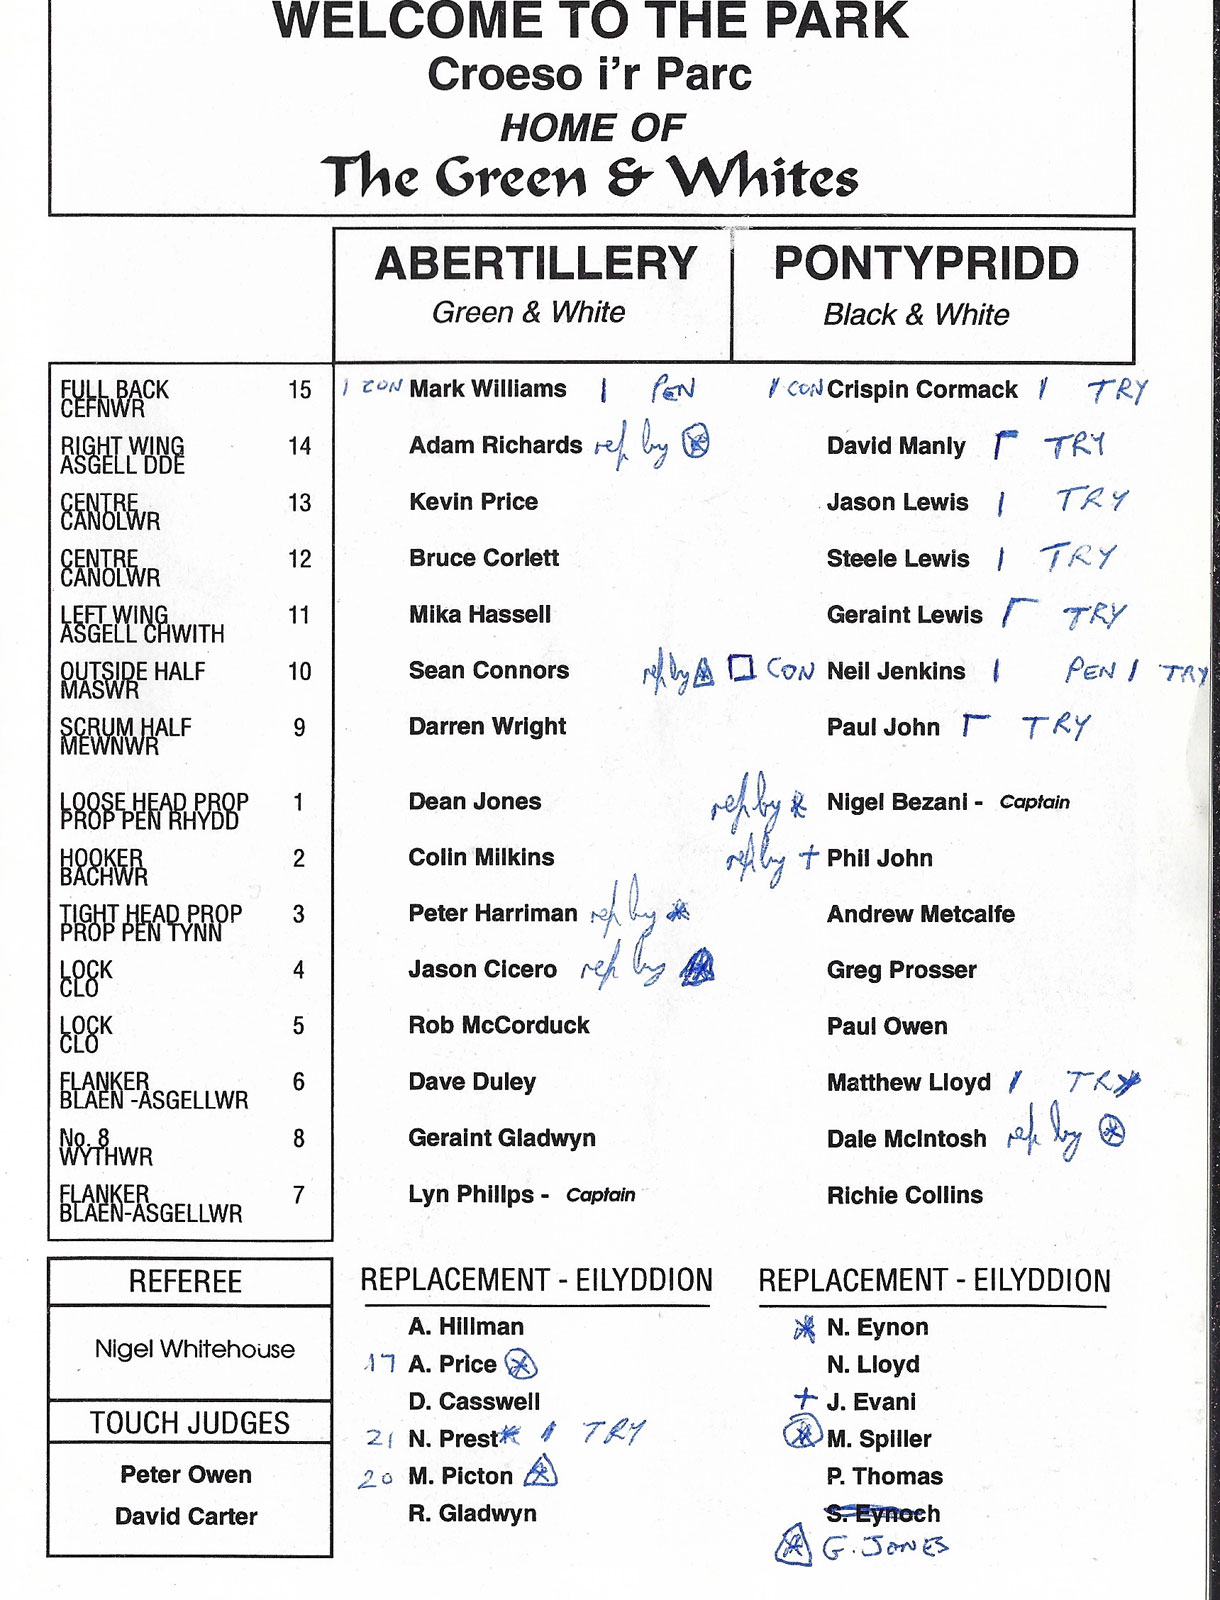 WELCOME TO THE PARK
Croeso i'r Parc
HOME OF
The Green & Whites
ABERTILLERY PONTYPRIDD
Green & White Black & White
FULL BACK 15 1 CON Mark Williams 1 PEN 1 CON Crispin Cormack 1 TRY
CEFNWR
RIGHT WING 14 Adam Richards rep by David Manly TRY
ASGELL DDE
CENTRE 13 Kevin Price Jason Lewis 1 TRY
CANOLWR
CENTRE 12 Bruce Corlett Steele Lewis 1 TRY
CANOLWR
LEFT WING 11 Mika Hassell Geraint Lewis TRY
ASGELL CHWITH
OUTSIDE HALF 10 Sean Connors rep by CON Neil Jenkins 1 PEN 1 TRY
MASWR
SCRUM HALF 9 Darren Wright Paul John TRY
MEWNWR
LOOSE HEAD PROP 1 Dean Jones rep by * Nigel Bezani - Captain
PROP PEN RHYDD
HOOKER 2 Colin Milkins rep by + Phil John
BACHWR
TIGHT HEAD PROP 3 Peter Harriman rep by * Andrew Metcalfe
PROP PEN TYNN
LOCK 4 Jason Cicero rep by Greg Prosser
CLO
LOCK 5 Rob McCorduck Paul Owen
CLO
FLANKER 6 Dave Duley Matthew Lloyd 1 TRY
BLAEN -ASGELLWR
No. 8 8 Geraint Gladwyn Dale McIntosh rep by
WYTHWR
FLANKER 7 Lyn Phillps - Captain Richie Collins
BLAEN-ASGELLWR
REFEREE
Nigel Whitehouse
TOUCH JUDGES
Peter Owen
David Carter
REPLACEMENT - EILYDDION
A. Hillman
17 A. Price
D. Casswell
21 N. Prest * 1 TRY
20 M. Picton
R. Gladwyn
REPLACEMENT - EILYDDION
* N. Eynon
N. Lloyd
+ J. Evani
M. Spiller
P. Thomas
S. Eynoch
G. JONES